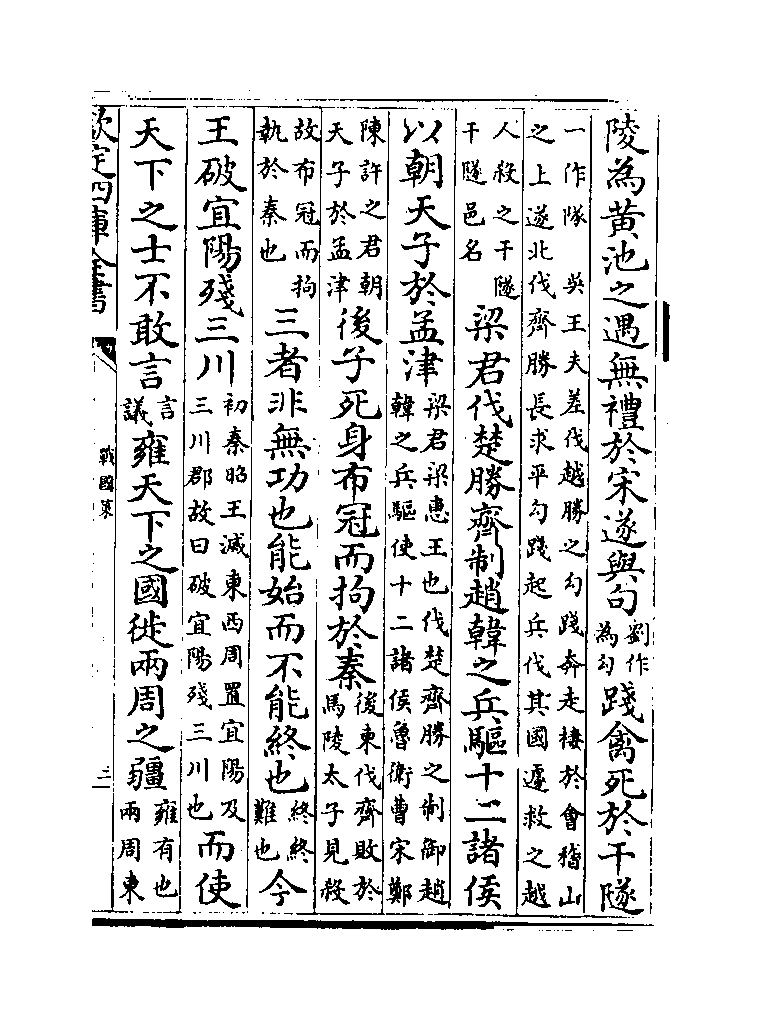 陵為黄池之遇無禮於宋遂與句劉作為勾踐禽死於干隧
一作隊　吳王夫差伐越勝之勾踐奔走棲於會稽山
之上遂北伐齊勝長求平勾踐起兵伐其國遽救之越
人殺之干隧干隧邑名梁君伐楚勝齊制趙韓之兵驅十二諸侯
以朝天子於孟津梁君梁惠王也伐楚齊勝之制御趙韓之兵驅使十二諸侯魯衛曹宋鄭
陳許之君朝天子於孟津後子死身布冠而拘於秦後東伐齊敗於馬陵太子見殺
故布冠而拘執於秦也三者非無功也能始而不能終也終終難也今
王破宜陽殘三川初秦昭王滅東西周置宜陽及三川郡故曰破宜陽殘三川也而使
天下之士不敢言言議雍天下之國徙兩周之疆雍有也兩周東
欽定四庫全書
戰國策
三